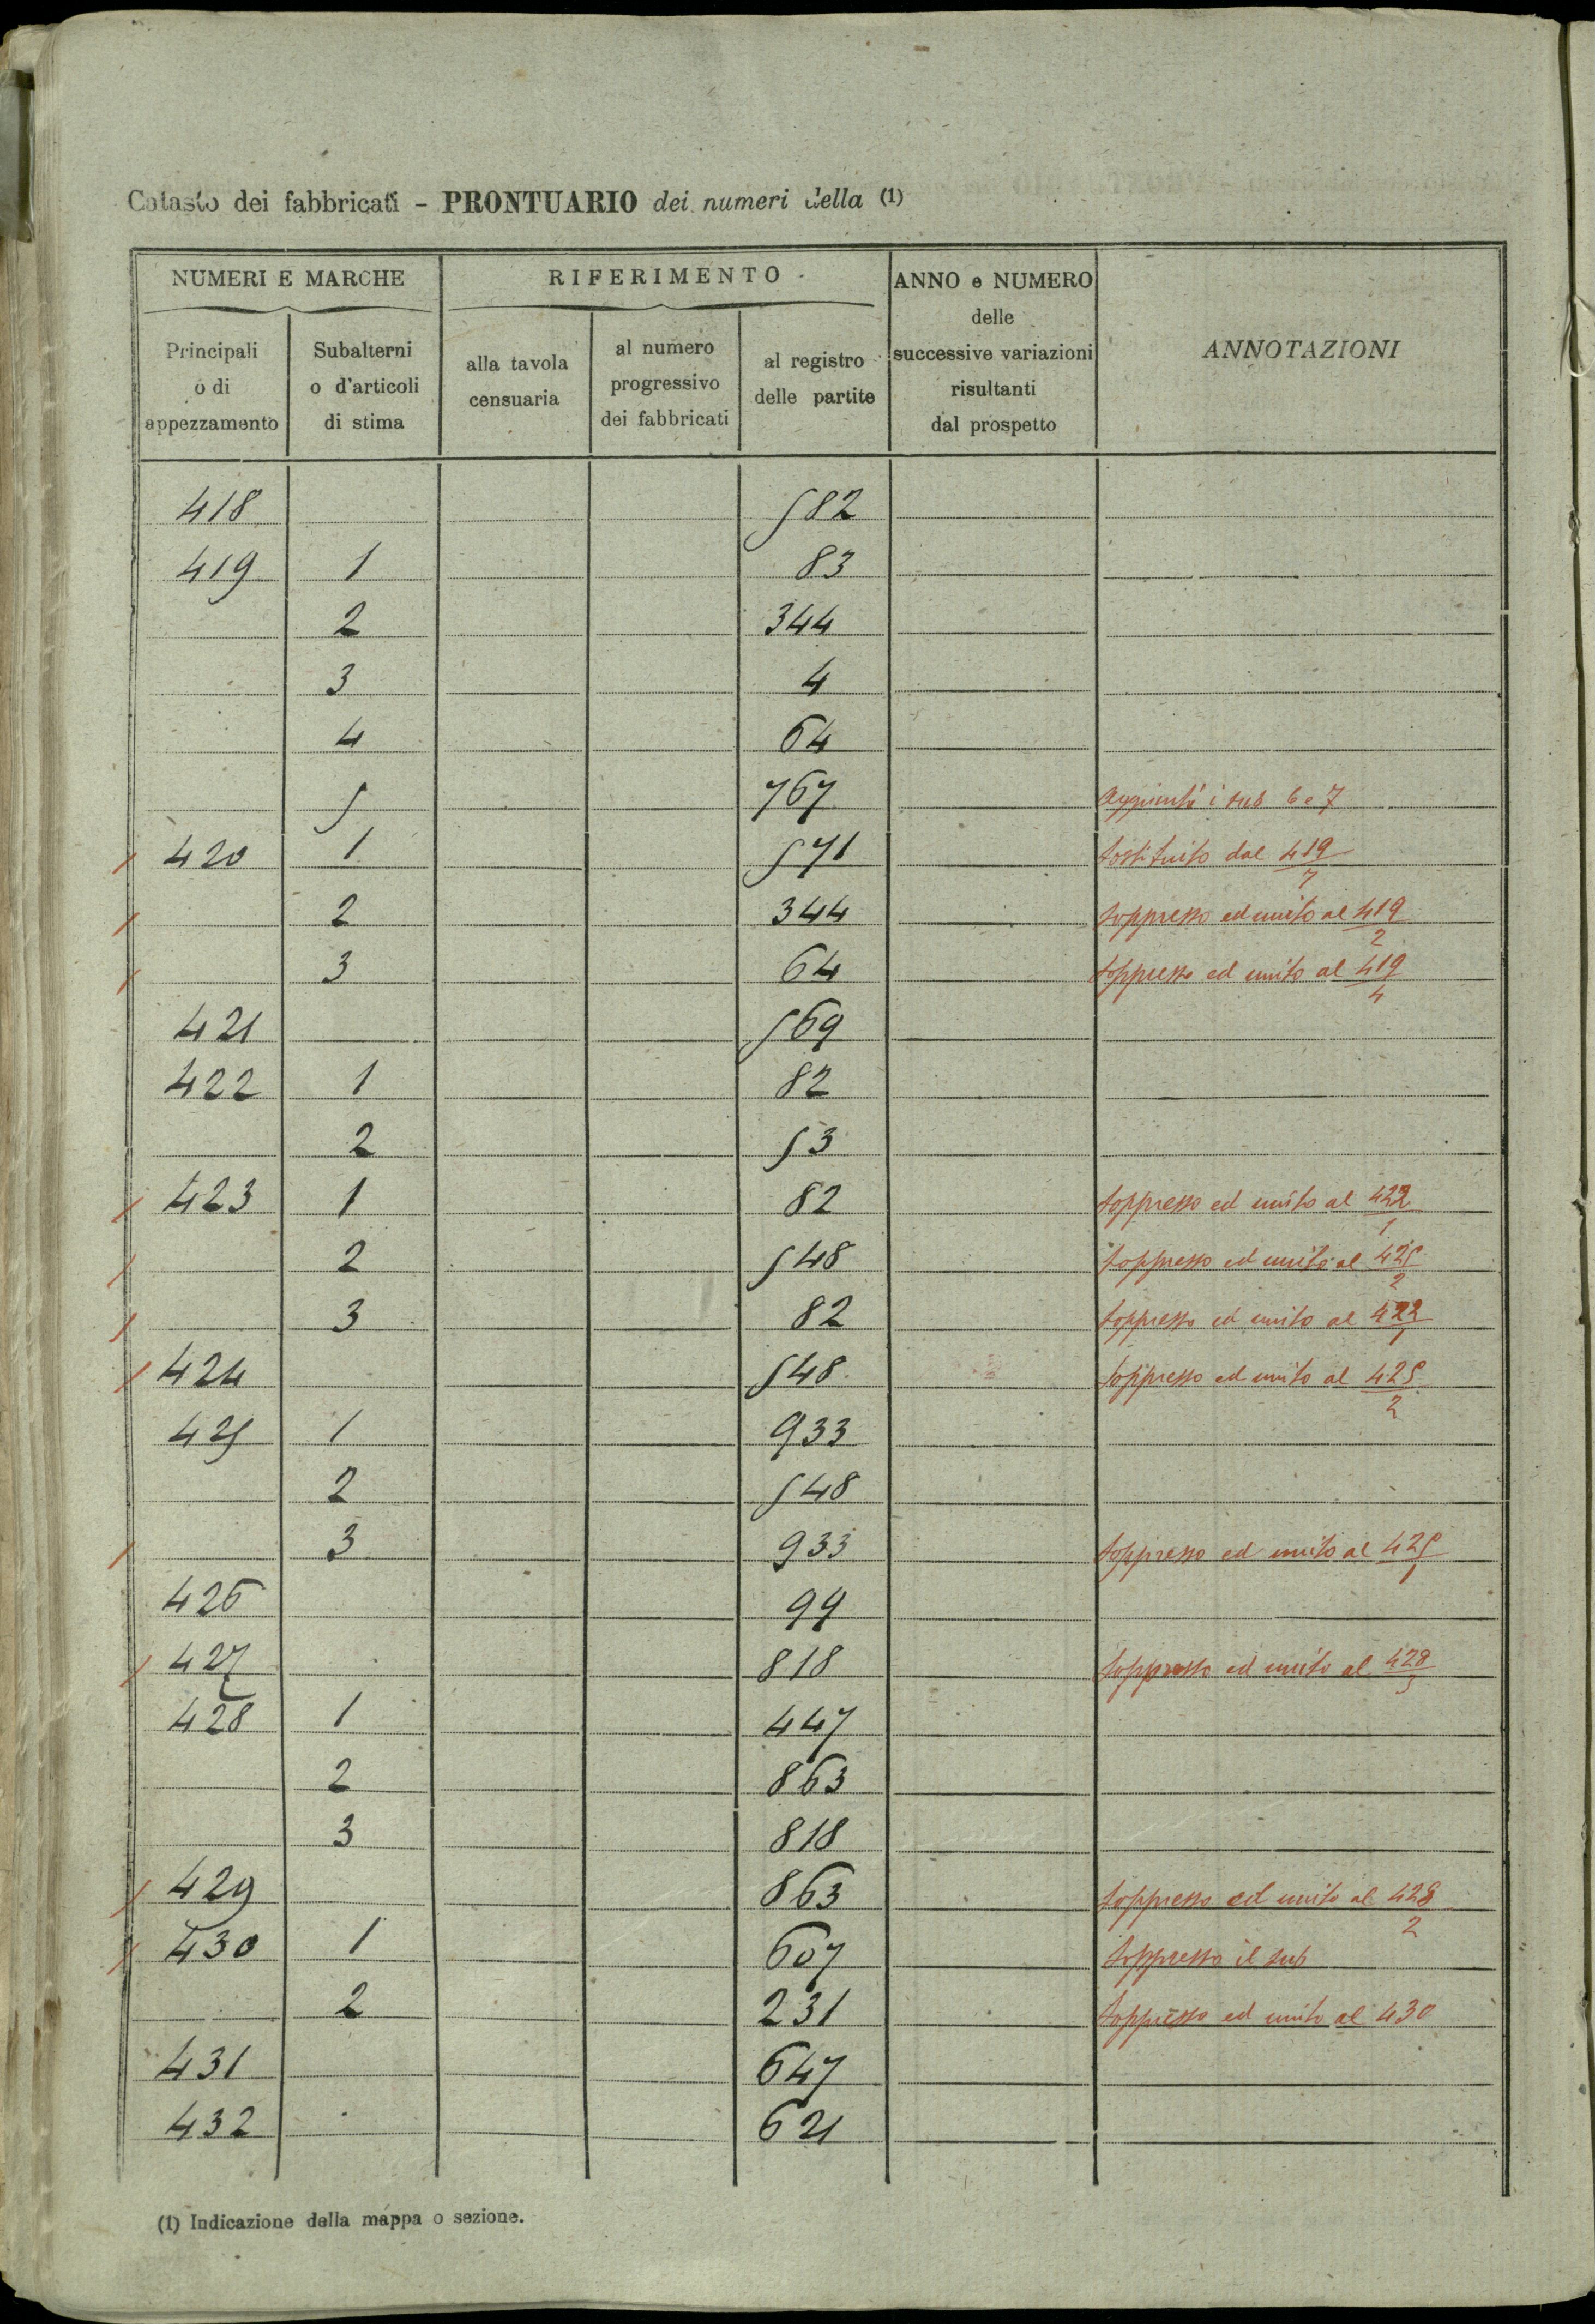 Catasto dei fabbricati - PRONTUARIO dei numeri della (1)
NUMERI E MARCHE
RIFERIMENTO
ANNO e NUMERO
delle
successive variazioni
risultanti
dal prospetto
ANNOTAZIONI
Principali
o di
appezzamento
Subalterni
o d'articoli
di stima
alla tavola
censuaria
al numero
progressivo
dei fabbricati
al registro
delle partite
418 582
419 1 83
2 344
3 4
4 64
5 767 Aggiunti i sub 6 e 7
420 1 571 Sostituito dal 419/7
2 344 Soppresso ed unito al 419/2
3 64 Soppresso ed unito al 419/4
421 569
422 1 82
2 53
423 1 82 Soppresso ed unito al 422/1
2 548 Soppresso ed unito al 425/2
3 82 Soppresso ed unito al 422/1
424 548 Soppresso ed unito al 425/2
425 1 933
2 548
3 933 Soppresso ed unito al 425/1
426 99
427 818 Soppresso ed unito al 428/3
428 1 447
2 863
3 818
429 863 Soppresso ed unito al 428/2
430 1 607 Soppresso il sub
2 231 Soppresso ed unito al 430
431 647
432 621
(1) Indicazione della mappa o sezione.